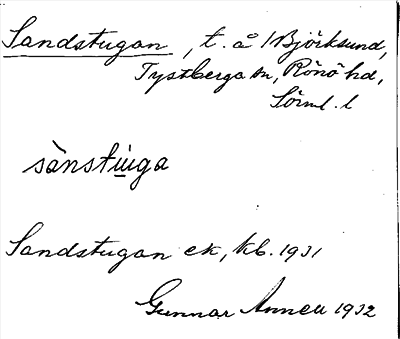 Sandstugan, t. å /Björksund,
Tystberga sn, Rönö hd,
Sörml. l
sànstùga
Sandstugan ek, kb. 1931
Gunnar Annell 1932